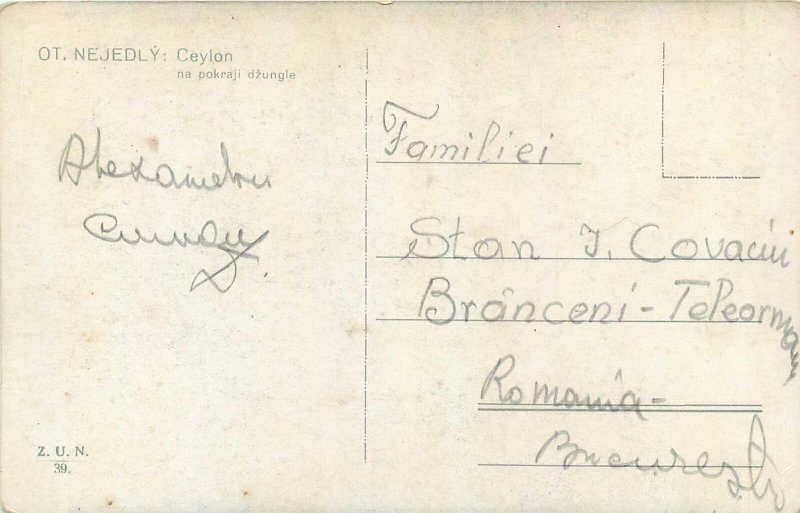 OT. NEJEDLÝ: Ceylon
na pokraji džungle
Alexandru
Familiei
Stan I. Covaciu
Brânceni - Teleorman
Romania -
Bucuresti
Z. U. N.
39.